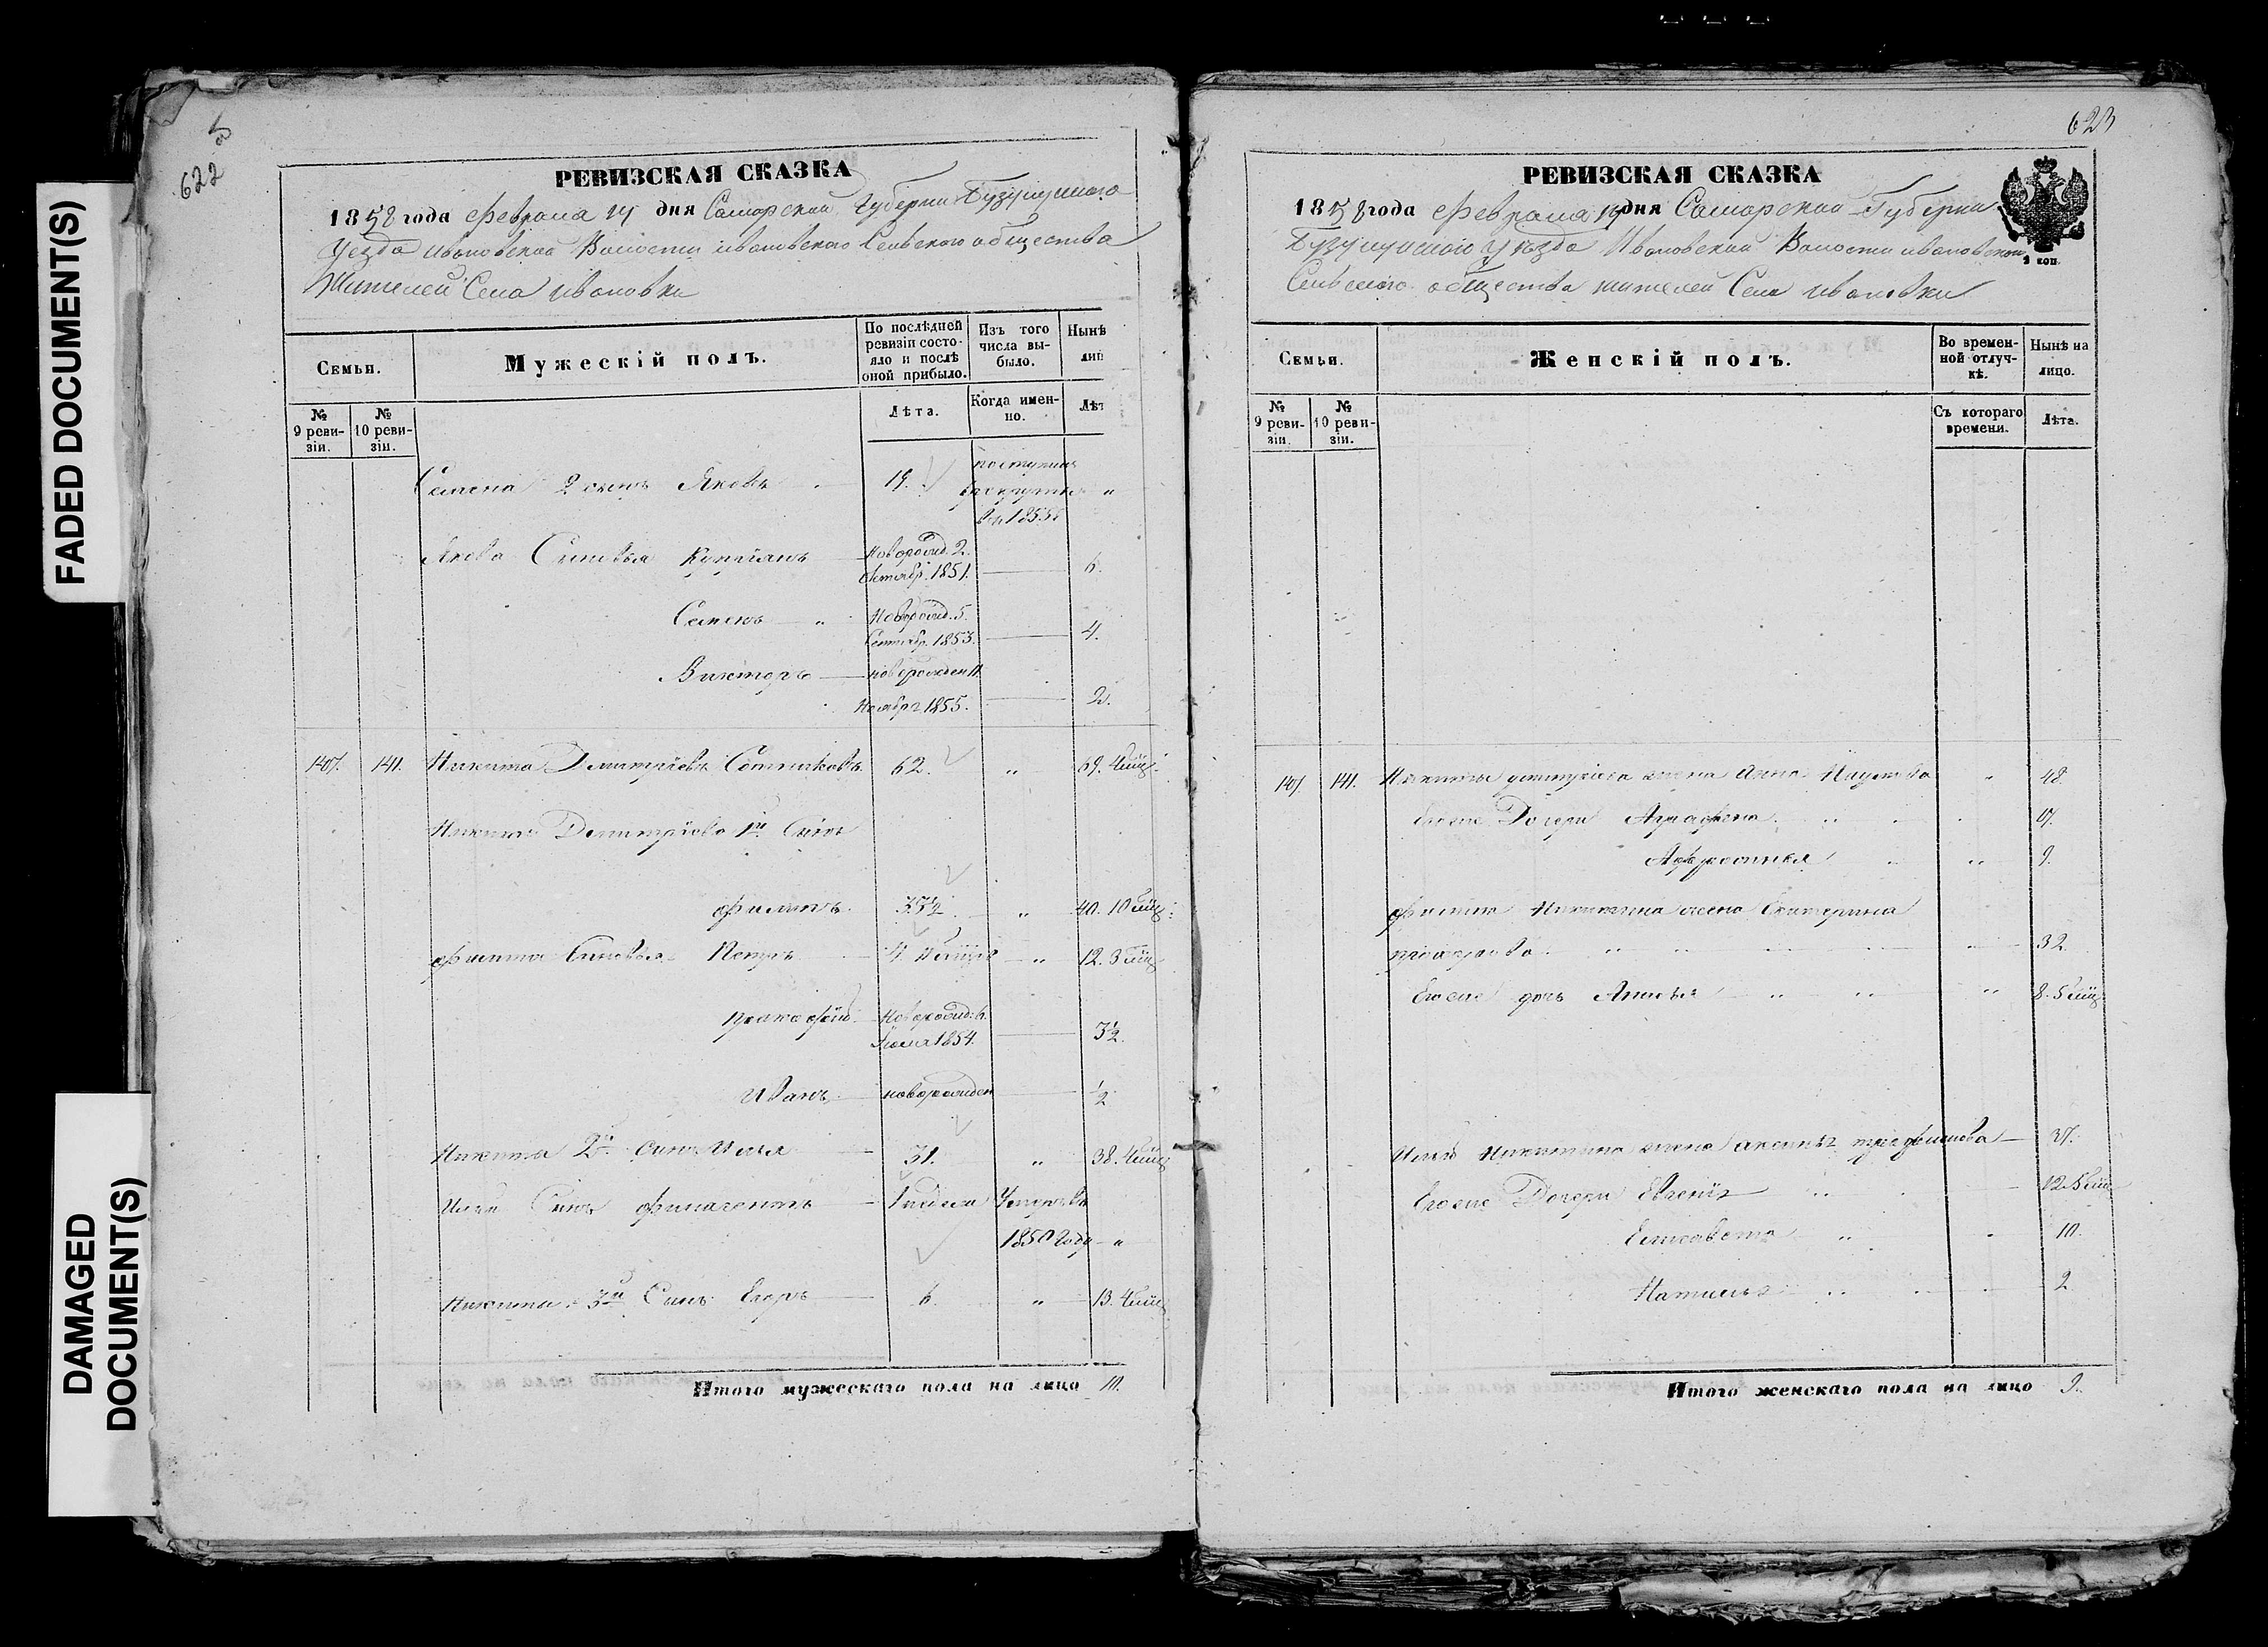 FADED DOCUMENT(S)
DAMAGED
DOCUMENT(S)
5
622
РЕВИЗСКАЯ СКАЗКА
1858 года Февраля 14 дня Самарской Губернии Бузулуцкаго
Уезда Ивановской Волости ивановскаго Сельскаго общества
Жителей Села Ивановки
Семьи.
Мужескій полъ.
По послѣдней ревизіи состояло и послѣ оной прибыло.
Изъ того числа выбыло.
Нынѣ
лиц
№ 9 ревизіи.
№ 10 ревизіи.
Лѣта.
Когда именно.
Лѣт
Семена 2 сынъ Яковъ 19. поступилъ в рекруты въ 1855 "
Якова Сыновья Купріянъ Новорожд. 2. Октябр. 1851. 6.
Семенъ " Новорожд. 5. Сентябр. 1853. 4.
Викторъ новорожден 11. Ноября 1855. 2.
107. 141. Никита Дмитріевъ Сотниковъ 62. " 69. 4 мѣц.
Никиты Дмитріева 1й Сынъ
Филипъ. 33½. " 40. 10 мѣц.
Филипа Сыновья Петръ " 12. 3 мѣц
Прокофій Новорожд: 6. 1854. 3½.
Иванъ новорожден ½
Никиты 2й Сынъ Илья 31. " 38. 4 мѣц
Ильи Сынъ 1 недели Умеръ въ
1850 году "
Никиты 3й Сынъ Егоръ 6. " 13. 4 мѣц
Итого мужескаго пола на лицо 10.
623
РЕВИЗСКАЯ СКАЗКА
1858 года Февраля 14 дня Самарской Губернии
Бузулуцкаго уезда Ивановской Волости ивановскаго
Сельскаго общества жителей Села Ивановки
Семьи.
Женскій полъ.
Во временной отлучкѣ.
Нынѣ на лицо.
№ 9 ревизіи.
№ 10 ревизіи.
Съ котораго времени.
Лѣта.
107. 141. Никиты Дмитріева жена Анна Наумова " 48.
Егоже Дочери Аграфена 17.
Афросинья " 9.
Филипа Никитина жена Екатерина
32.
Егоже дочь " 8. 5 мѣц
Ильи Никитина жена Аксинья 37.
Егоже Дочери Евгенія 12. 5 мѣц
Елисавета " 10.
Наталья 2.
Итого женскаго пола на лицо 9.